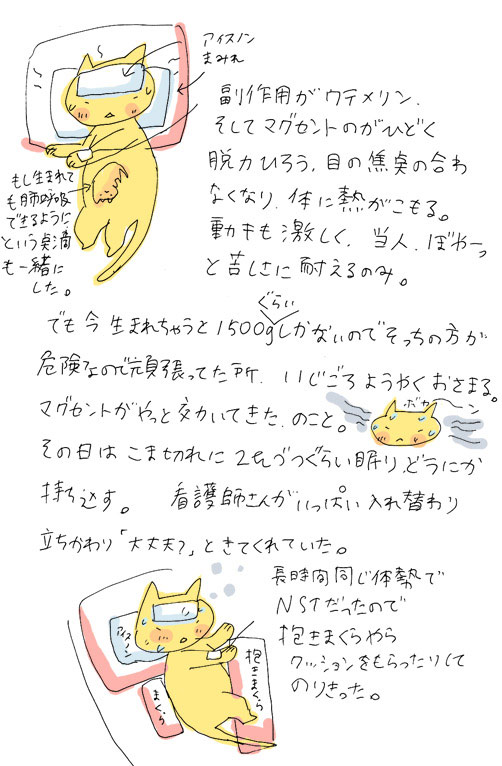 アイスノン
まみれ
副作用がウテメリン、
そしてマグセントのがひどく
脱力ひろう、目の焦点の合わ
なくなり、体に熱がこもる。
動キも激しく、当人、ぼやーっ
と苦しさに耐えるのみ。
もし生まれて
も肺呼吸
できるように
という点滴
も一緒に
した。
ぐらい
でも今生まれちゃうと1500gしかないのでそっちの方が
危険なので頑張ってた所、いじごろようやくおさまる。
マグセントがやっと効いてきた、のこと。
ボヤーン
その日はこま切れに2hづつぐらい眠り、どうにか
持ち返す。 看護師さんがいっぱい入れ替わり
立ちかわり「大丈夫?」ときてくれていた。
長時間同じ体勢で
NSTだったので
抱きまくらやら
クッションをもらったりして
のりきった。
アイスノン
まくら
抱きまくら